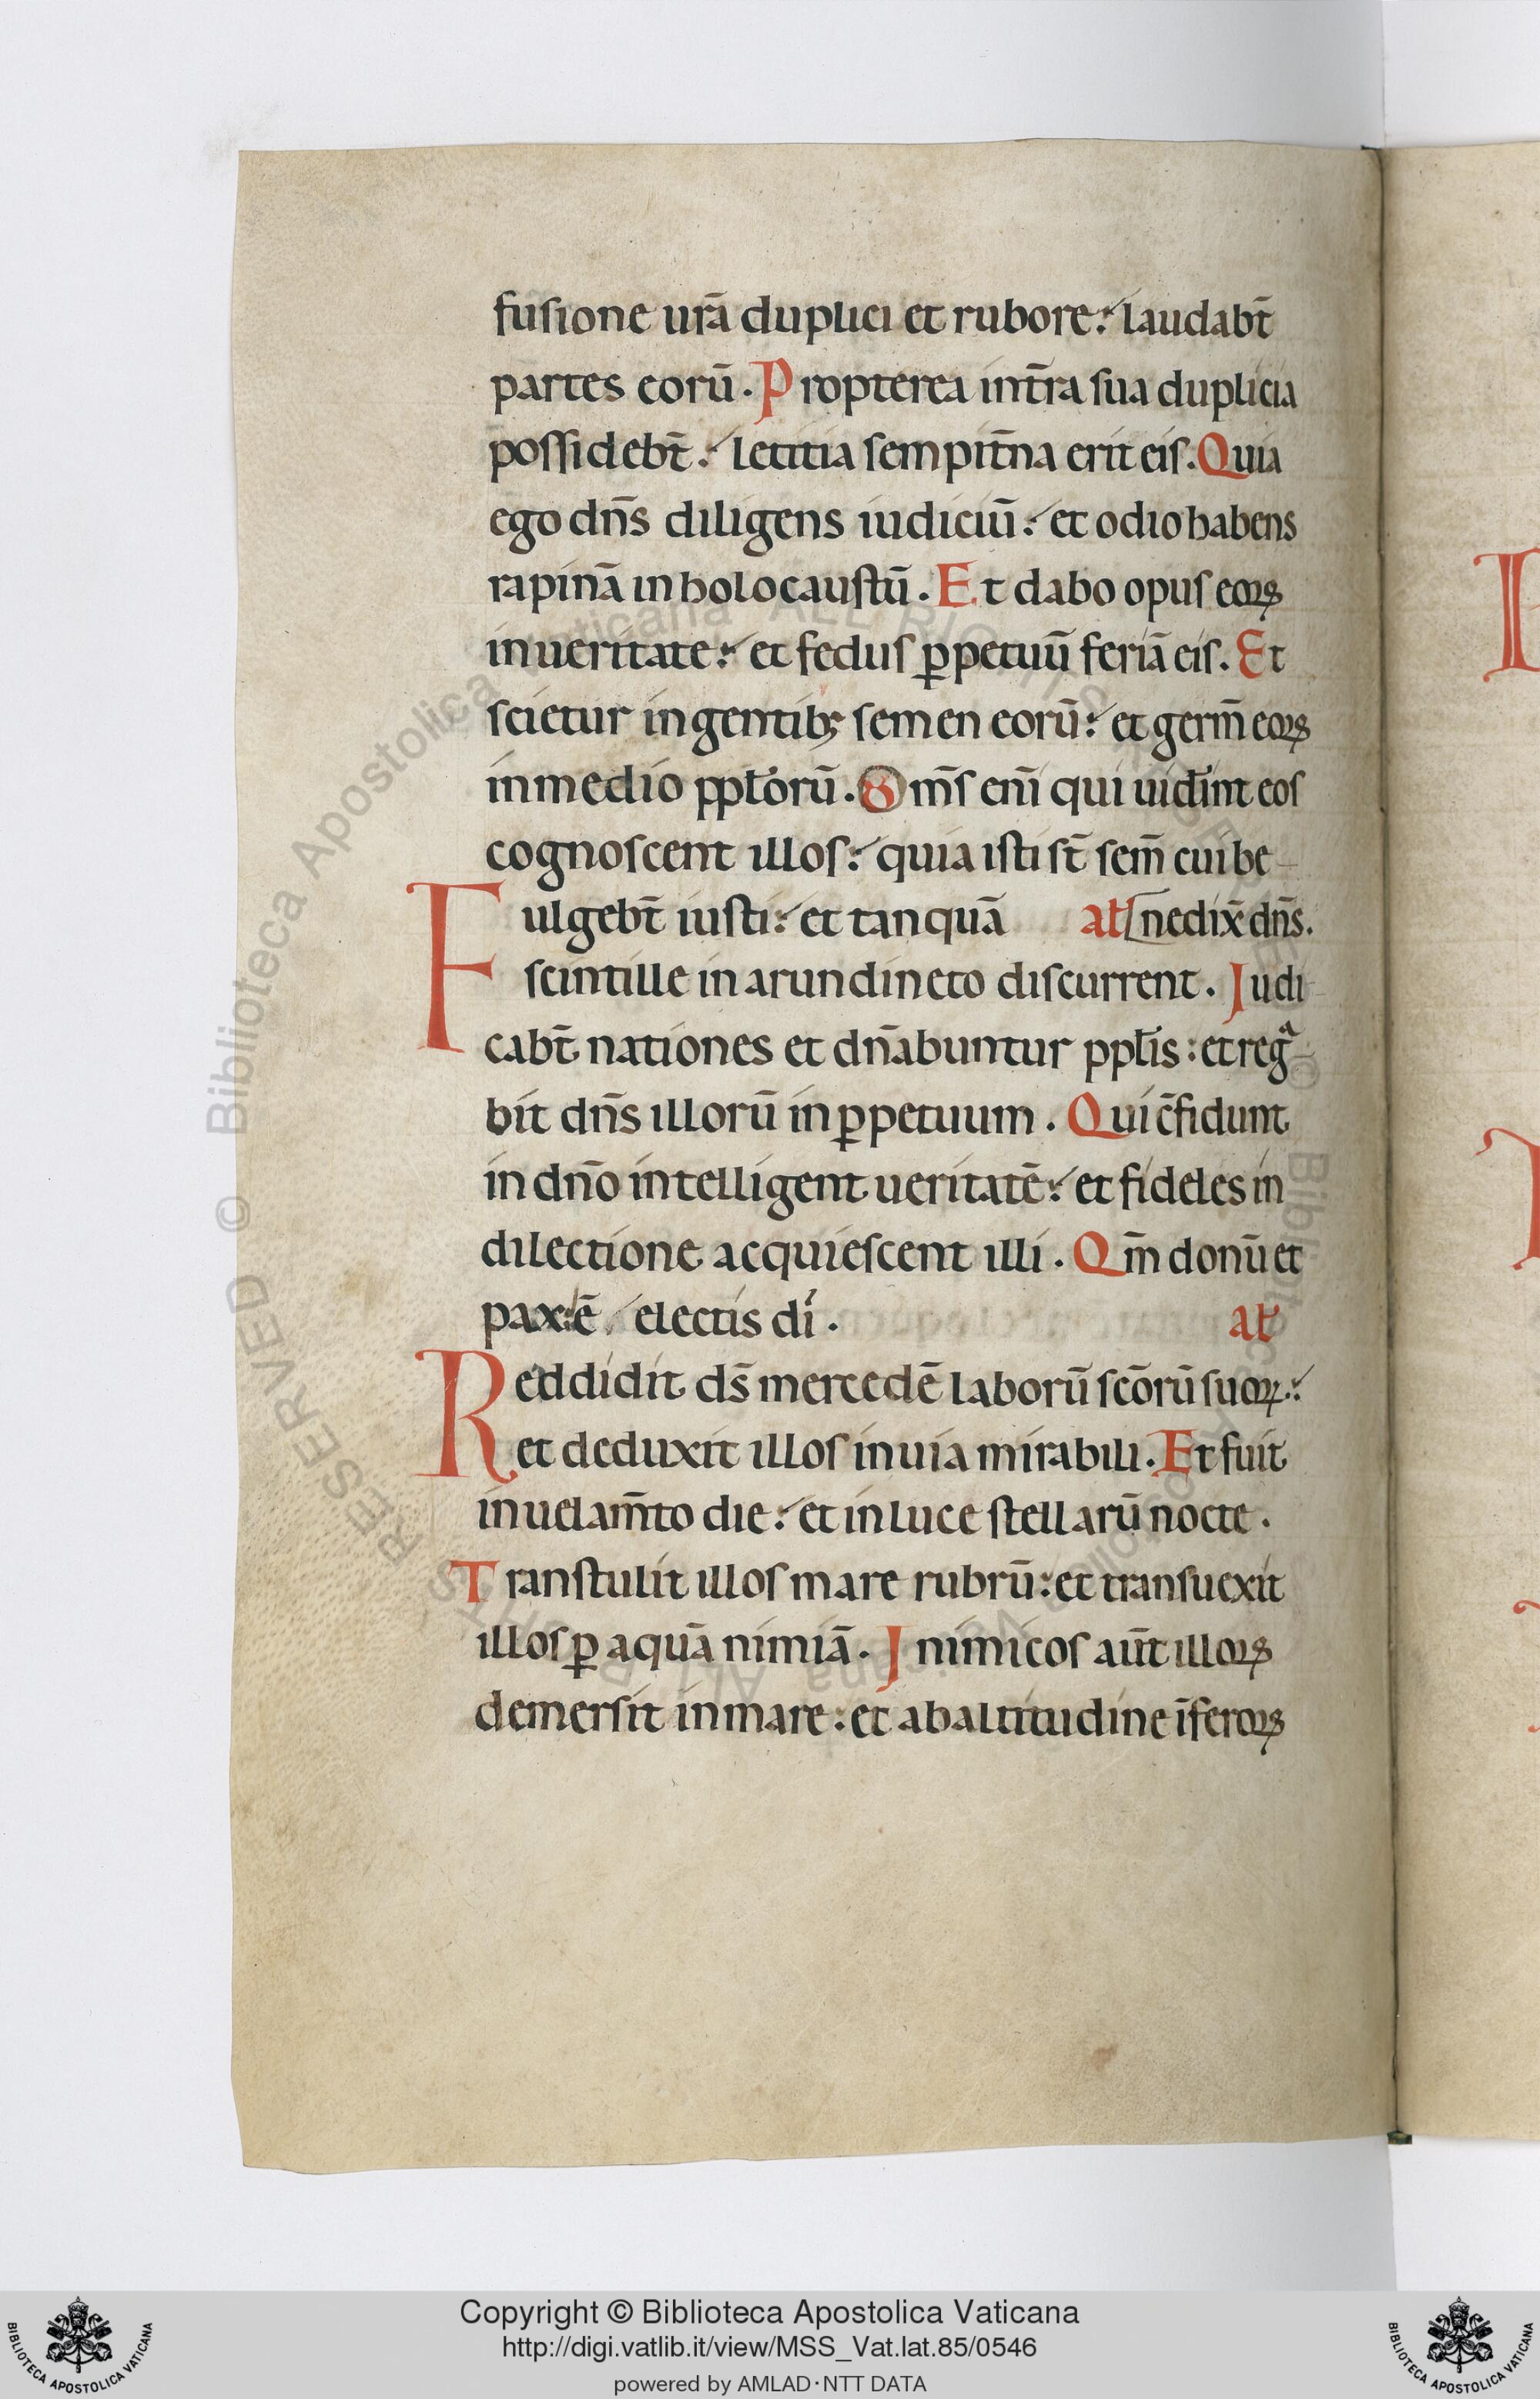 fusione ur̄a duplici et rubore: laudab̄t
partes eorū. Propterea int̄ra sua duplicia
possideb̄t: letitia sempit̄na erit eis. Quia
ego dn̄s diligens iudiciū: et odio habens
rapinā in holocaustū. Et dabo opus eoꝝ
in ueritate: et fedus ꝑpetuū feriā eis. Et
scietur in gentibꝫ semen eorū: et germ̄ eoꝝ
in medio ppl̄orū. Om̄s enī᷎ qui uid̄int eos
cognoscent illos: quia isti st̄ sem̄ cui be-
Fulgeb̄t iusti: et tanquā al̄ nedix̄ dn̄s.
scintille in arundineto discurrent. Iudi
cab̄t nationes et dn̄abuntur ppl̄is: et regͣ-
bit dn̄s illorū in ꝑpetuum. Qui c̄fidunt
in dn̄o intelligent ueritatē: et fideles in
dilectione acquiescent illi. Qm̄ donū et
pax: ē electis dı̄. al̄
Reddidit ds̄ mercedē laborū sc̄orū suoꝝ:
et deduxit illos in uia mirabili. Et fuit
in uelam̄to die: et in luce stellarū nocte.
Transtulit illos mare rubrū: et transuexit
illos ꝑ aquā nimiā. Inimicos aūt illoꝝ
demersit in mare: et ab altitudine īferoꝝ
Copyright © Biblioteca Apostolica Vaticana
http://digi.vatlib.it/view/MSS_Vat.lat.85/0546
powered by AMLAD·NTT DATA
BIBLIOTECA APOSTOLICA VATICANA
BIBLIOTECA APOSTOLICA VATICANA